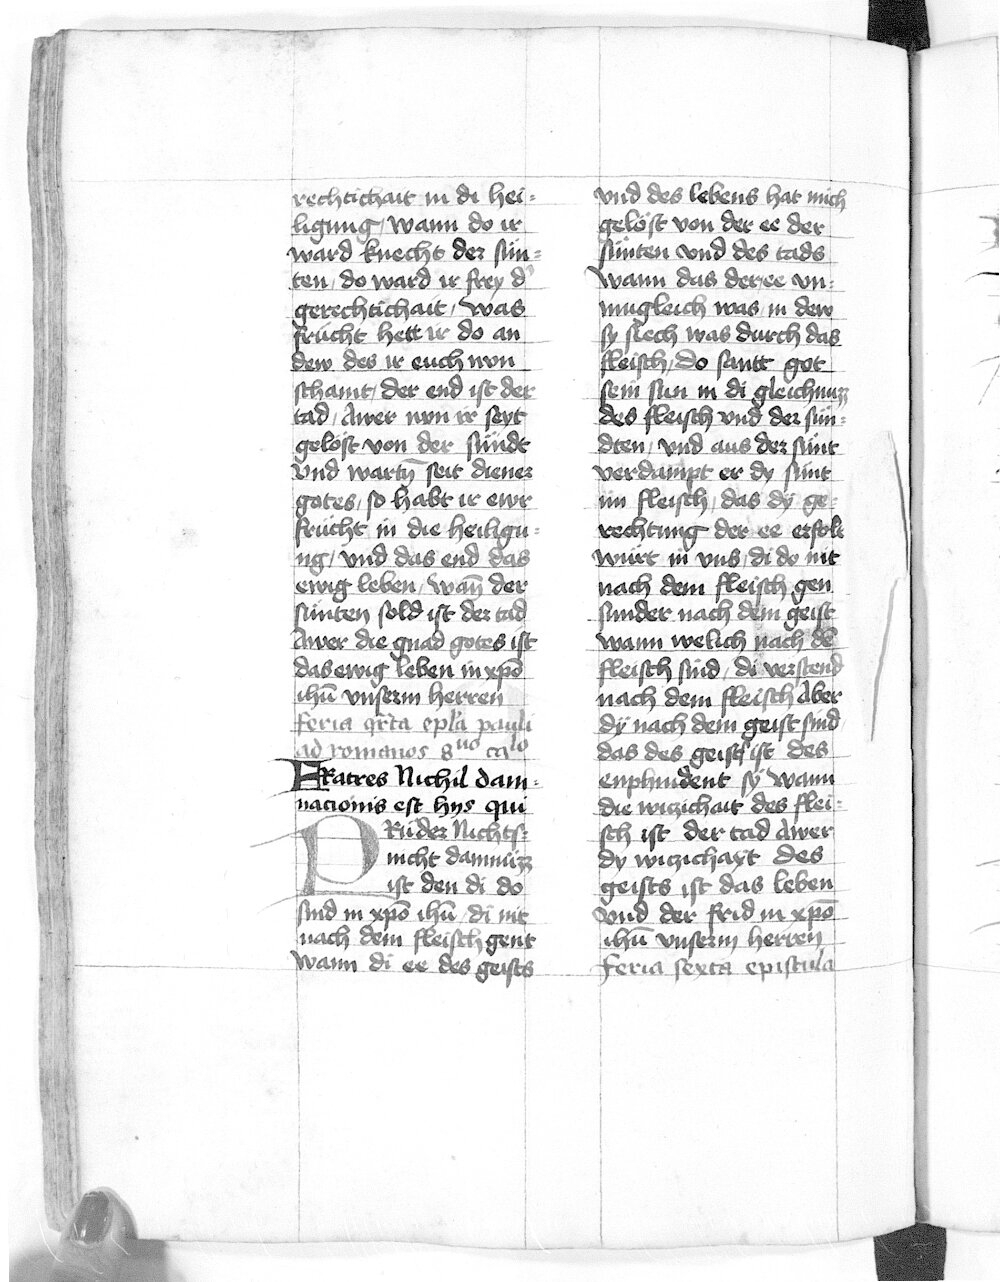 rechtichait in di hei-
ligung / wann do ir
ward knecht der sün-
ten / do ward ir frey d'
gerechtichait / was
frücht hett ir do an
dew des ir euch nvn
schamt / der end ist der
tad / Awer nvn ir seyt
gelöst von der sündt
vnd wartn̄ seit diener
gotes / so habt ir ewr
frücht in die heiligu-
ng / vnd das end das
ewig leben / wan̄ der
sünten sold ist der tad
Awer die gnad gotes ist
das ewig leben in xpō
ihū vnserm herren
feria qr̄ta epl̄a pauli
ad romanos 8uo calo
FRatres Nichil dam-
nacionis est hys qui
PRüder Nichts-
nicht damnüzz
ist den di do
sind in xpō ihū / di nit
nach dem fleisch gent
wann di ee des geists
vnd des lebens hat mich
gelöst von der ee der
sünten vnd des tads
wann das der ee vn-
mugleich was / in dew
sy siech was durch das
fleisch / do santt got
sein sun in di gleichnuzz
des fleisch vnd der sün-
dten / vnd aus der sünt
verdampt er dy sünt
im fleisch / das dy ge-
rechtung der ee erfolt
würt in vns / di do nit
nach dem fleisch gen
sunder nach dem geist
wann welich nach dē
fleisch sind / di verstend
nach dem fleisch Aber
dy nach dem geist sind
das des geist ist des
enphindent sy wann
die wizichait des flei-
sch ist der tad Awer
dy wizichayt des
geists ist das leben
vnd der frid in xpō
ihū vnserm herren
feria sexta epistula